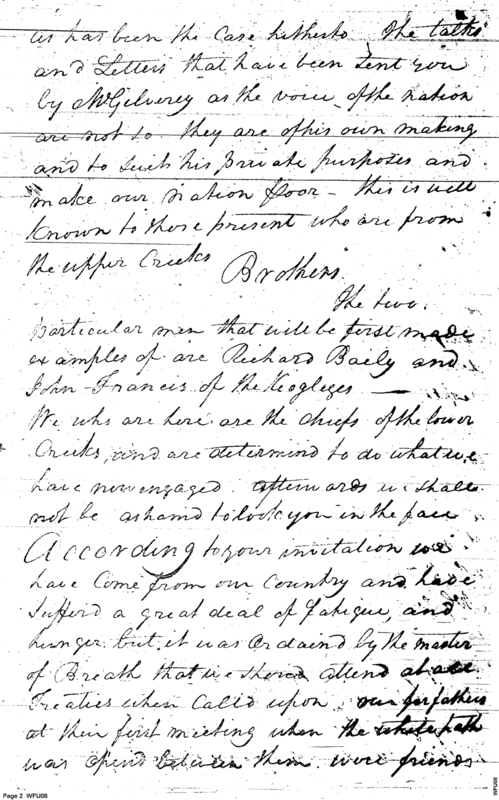 as has been the Case hitherto The talks
and Letters that have been sent you
by McGilverey as the voice of the nation
are not so they are of his own making
and to suit his Private purposes and
make our nation poor - this is well
known to those present who are from
the upper Creeks
Brothers.
The two.
particular men that will be first made
examples of are Richard Baely and
John-Francis of the
We who are here are the chiefs of the lower
Creeks, and are determind to do what we
have now engaged. afterwards we shall
not be ashamd to look you in the face
According to your invitation we
have Come from our Country and have
Sufferd a great deal of fatigue, and
hunger but it was ordaind by the master
of Breath that we should attend at all
Treaties when Calld upon, our forfathers
at their first meeting when the white path
was opend between them were friends
Page 2 WFU08
WFU08